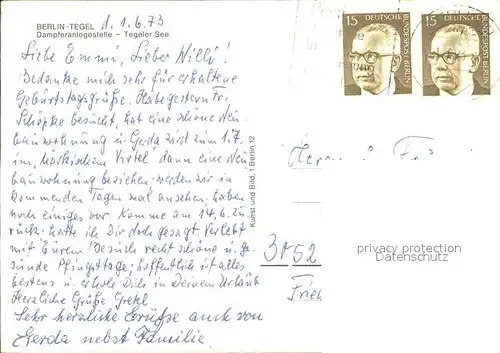 BERLIN-TEGEL d. 1.6.73
Dampferanlegestelle – Tegeler See
Liebe Emmi, Lieber Willi!
Bedanke mich sehr für erhaltene
Geburtstagsgrüße. Habe gestern Fr.
Schöpke besucht, hat eine schöne Neu-
bauwohnung u. Gerda wird zum 1.7.
im „Märkischem Virtel“ dann eine Neu
bauwohnung beziehen. werden wir in
kommenden Tagen mal ansehen. haben
noch einiges vor. Komme am 14.6. zu
rück. hatte ich Dir doch gesagt. Verlebt
mit Eurem Besuch recht schöne u. ge-
sunde Pfingsttage. hoffentlich ist alles
bestens u. erhole Dich in Deinem Urlaub
Herzliche Grüße Gretel
Sehr herzliche Grüße auch von
Gerda nebst Familie.
Kunst und Bild, 1 Berlin 12
15 DEUTSCHE BUNDESPOST BERLIN
15 DEUTSCHE BUNDESPOST BERLIN
3052
Fried
privacy protection
Datenschutz